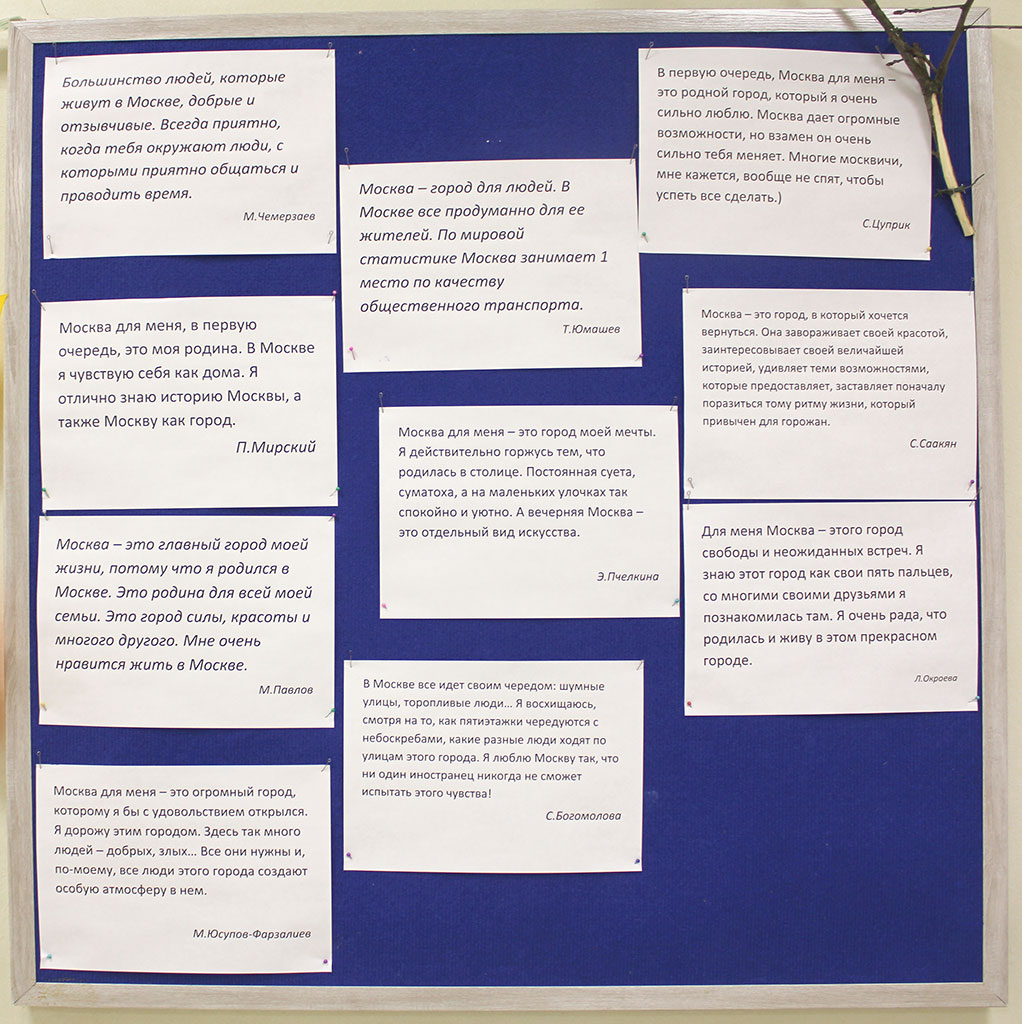 Большинство людей, которые
живут в Москве, добрые и
отзывчивые. Всегда приятно,
когда тебя окружают люди, с
которыми приятно общаться и
проводить время.
М.Чемерзаев
Москва для меня, в первую
очередь, это моя родина. В Москве
я чувствую себя как дома. Я
отлично знаю историю Москвы, а
также Москву как город.
П.Мирский
Москва – это главный город моей
жизни, потому что я родился в
Москве. Это родина для всей моей
семьи. Это город силы, красоты и
многого другого. Мне очень
нравится жить в Москве.
М.Павлов
Москва для меня – это огромный город,
которому я бы с удовольствием открылся.
Я дорожу этим городом. Здесь так много
людей – добрых, злых... Все они нужны и,
по-моему, все люди этого города создают
особую атмосферу в нем.
М.Юсупов-Фарзалиев
Москва – город для людей. В
Москве все продуманно для ее
жителей. По мировой
статистике Москва занимает 1
место по качеству
общественного транспорта.
Т.Юмашев
Москва для меня – это город моей мечты.
Я действительно горжусь тем, что
родилась в столице. Постоянная суета,
суматоха, а на маленьких улочках так
спокойно и уютно. А вечерняя Москва –
это отдельный вид искусства.
Э.Пчелкина
В Москве все идет своим чередом: шумные
улицы, торопливые люди... Я восхищаюсь,
смотря на то, как пятиэтажки чередуются с
небоскребами, какие разные люди ходят по
улицам этого города. Я люблю Москву так, что
ни один иностранец никогда не сможет
испытать этого чувства!
С.Богомолова
В первую очередь, Москва для меня –
это родной город, который я очень
сильно люблю. Москва дает огромные
возможности, но взамен он очень
сильно тебя меняет. Многие москвичи,
мне кажется, вообще не спят, чтобы
успеть все сделать.)
С.Цуприк
Москва – это город, в который хочется
вернуться. Она завораживает своей красотой,
заинтересовывает своей величайшей
историей, удивляет теми возможностями,
которые предоставляет, заставляет поначалу
поразиться тому ритму жизни, который
привычен для горожан.
С.Саакян
Для меня Москва – этого город
свободы и неожиданных встреч. Я
знаю этот город как свои пять пальцев,
со многими своими друзьями я
познакомилась там. Я очень рада, что
родилась и живу в этом прекрасном
городе.
Л.Окроева